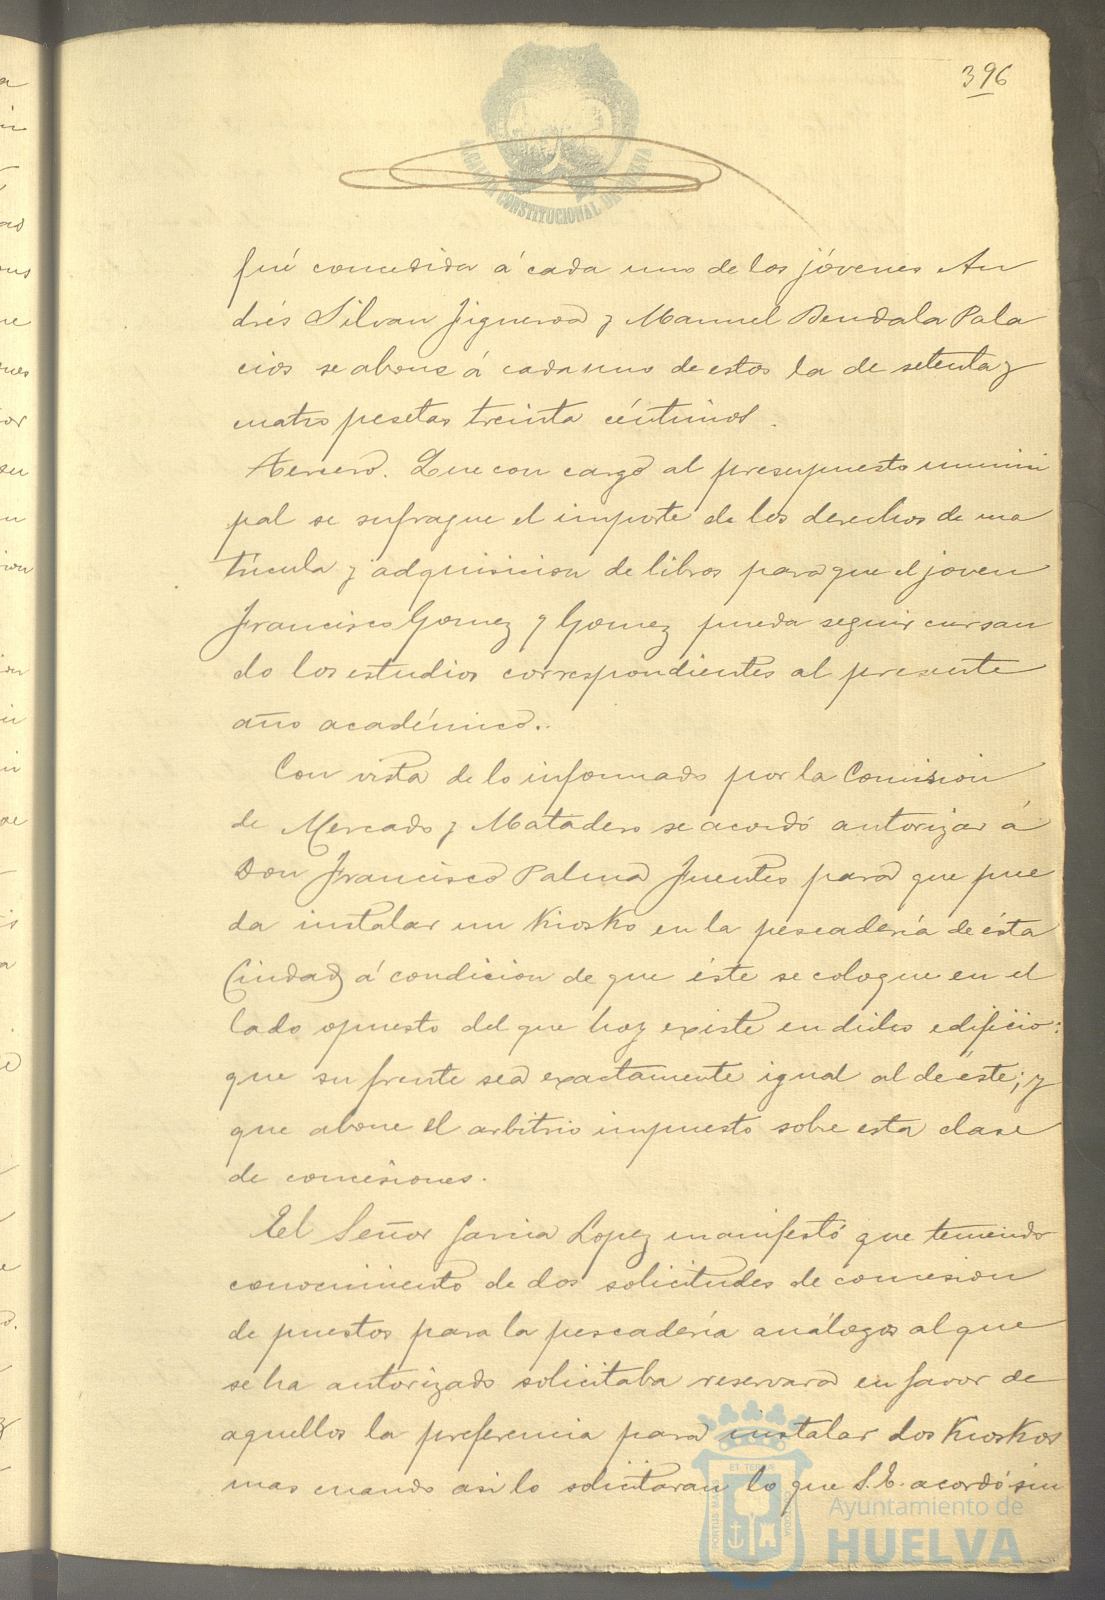 396
ALCALDIA CONSTITUCIONAL DE HUELVA
fué concedida á cada uno de los jóvenes An
drés Silvan Figueroa y Manuel Bendala Pala
cios se abone á cada uno de estos la de setenta y
cuatro pesetas treinta céntimos.
Tercero. Que con cargo al presupuesto munici
pal se sufrague el importe de los derechos de ma
trícula y adquisicion de libros para que el joven
Francisco Gomez y Gomez pueda seguir cursan
do los estudios correspondientes al presente
año académico.
Con vista de lo informado por la Comision
de Mercado y Matadero se acordó autorizar á
Don Francisco Palma Fuentes para que pue
da instalar un Kiosko en la pescadería de ésta
Ciudad á condicion de que éste se coloque en el
lado opuesto del que hoy existe en dicho edificio:
que su frente sea exactamente igual al de éste; y
que abone el arbitrio impuesto sobre esta clase
de concesiones.
El Señor Garcia Lopez manifestó que teniendo
conocimiento de dos solicitudes de concesion
de puestos para la pescadería análogos al que
se ha autorizado solicitaba reservara en favor de
aquellos la preferencia para instalar dos Kioskos
mas cuando asi lo solicitaran lo que S.E. acordó sin
PORTUS MARIS ET TERRE CUSTODIA
Ayuntamiento de
HUELVA